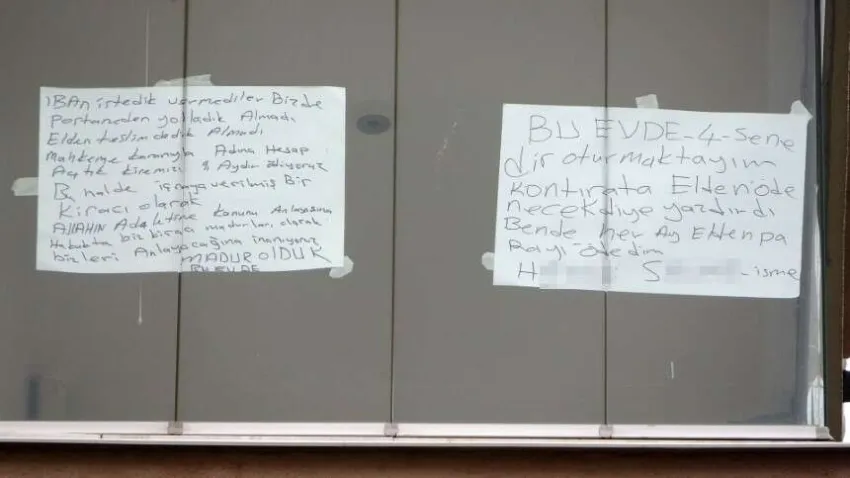 IBAn istedik vermediler Bizde
Postaneden yolladık Almadı
Elden teslim dedik Almadı
Mahkeme kararıyla Adına Hesap
Açtık kiremizi 8 Aydır ödiyoruz
Bu halde icraya verilmiş Bir
Kiracı olarak
AllAHIN AdAletine kanunu Anlayışına
Hukukta biz kiracı madurları olarak
bizleri Anlayacağına inanıyoruz
MADUR OLDUK
BU EVDE
BU EVDE-4-Sene
dir oturmaktayım
kontırata Elden öde
necek diye yazdırdı
Bende her Ay Elden pa
Rayı ödedim
H S -isme